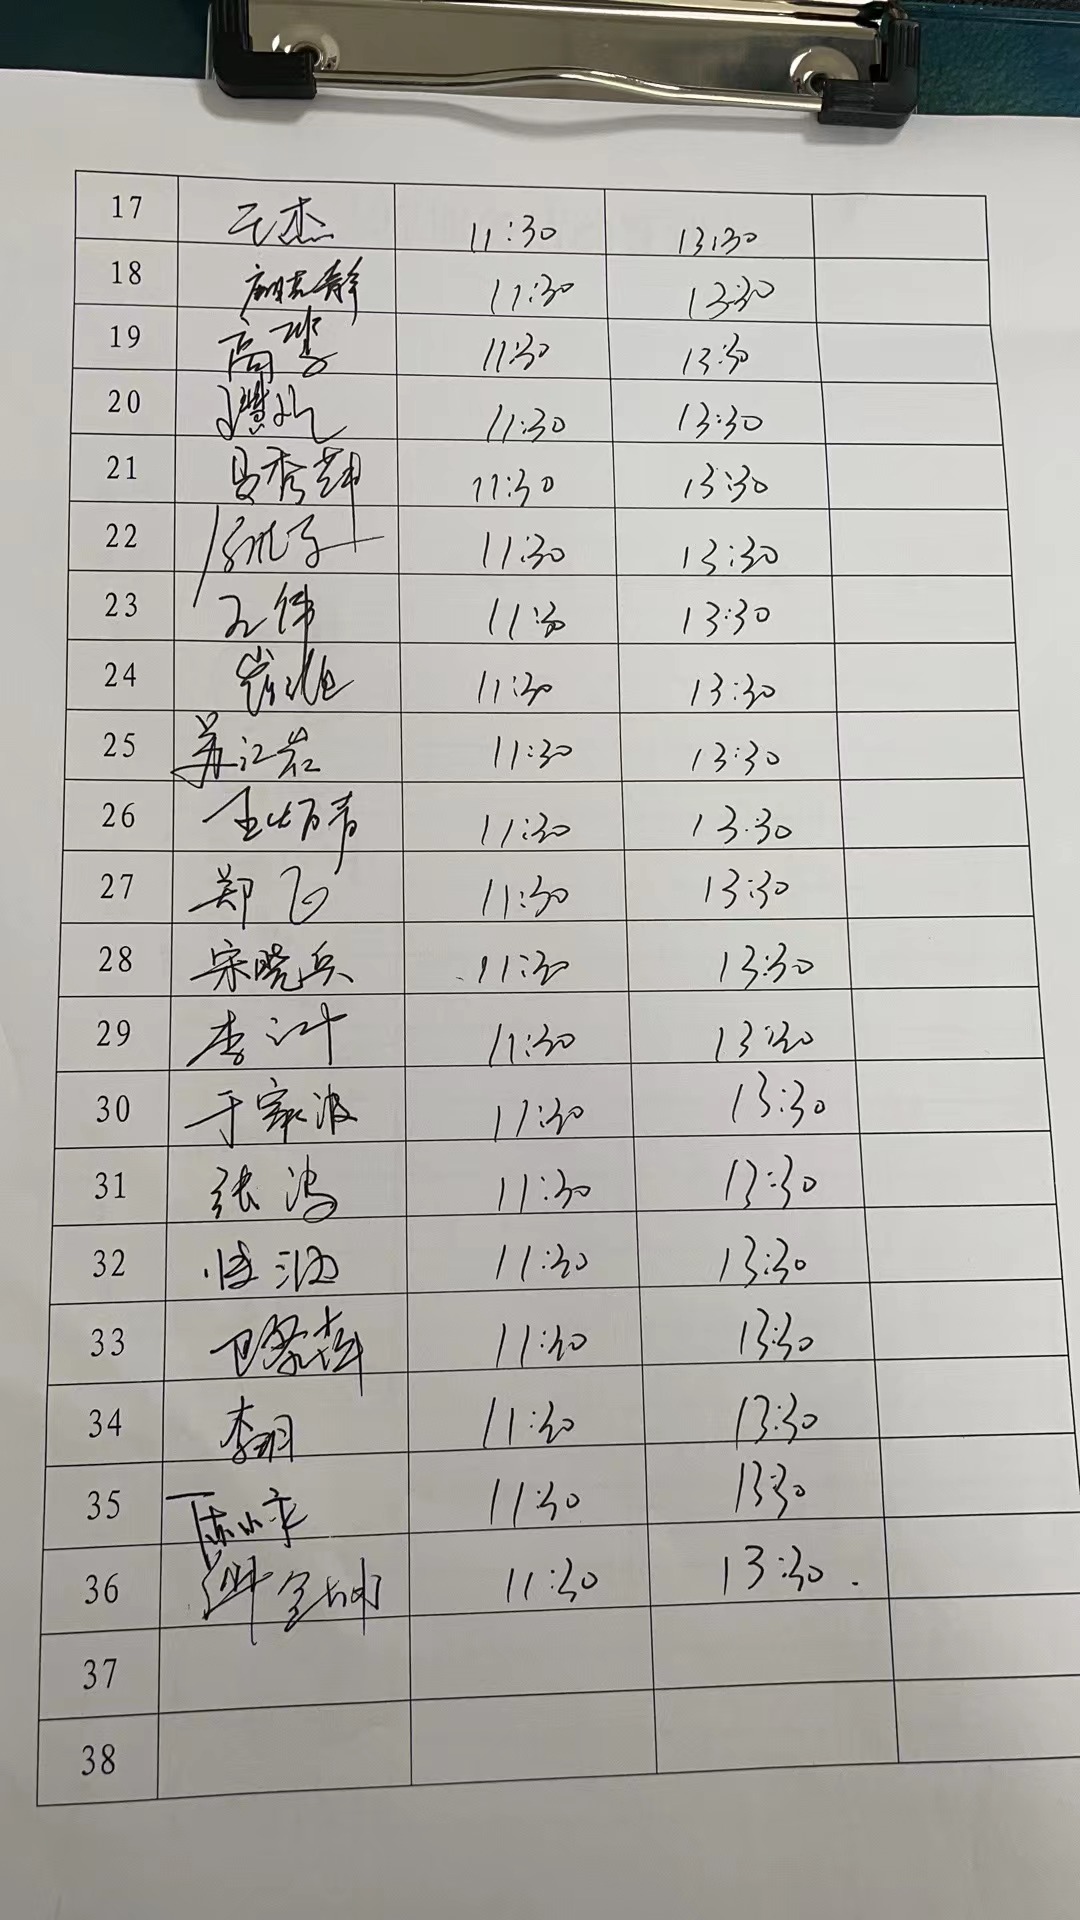 17 王杰 11:30 13:30
18 11:30 13:30
19 11:30 13:30
20 11:30 13:30
21 11:30 13:30
22 11:30 13:30
23 王伟 11:30 13:30
24 11:30 13:30
25 苏江岩 11:30 13:30
26 11:30 13:30
27 郑飞 11:30 13:30
28 宋晓兵 11:30 13:30
29 李 11:30 13:30
30 于家波 11:30 13:30
31 张涛 11:30 13:30
32 11:30 13:30
33 11:30 13:30
34 李明 11:30 13:30
35 陈小平 11:30 13:30
36 11:30 13:30.
37
38